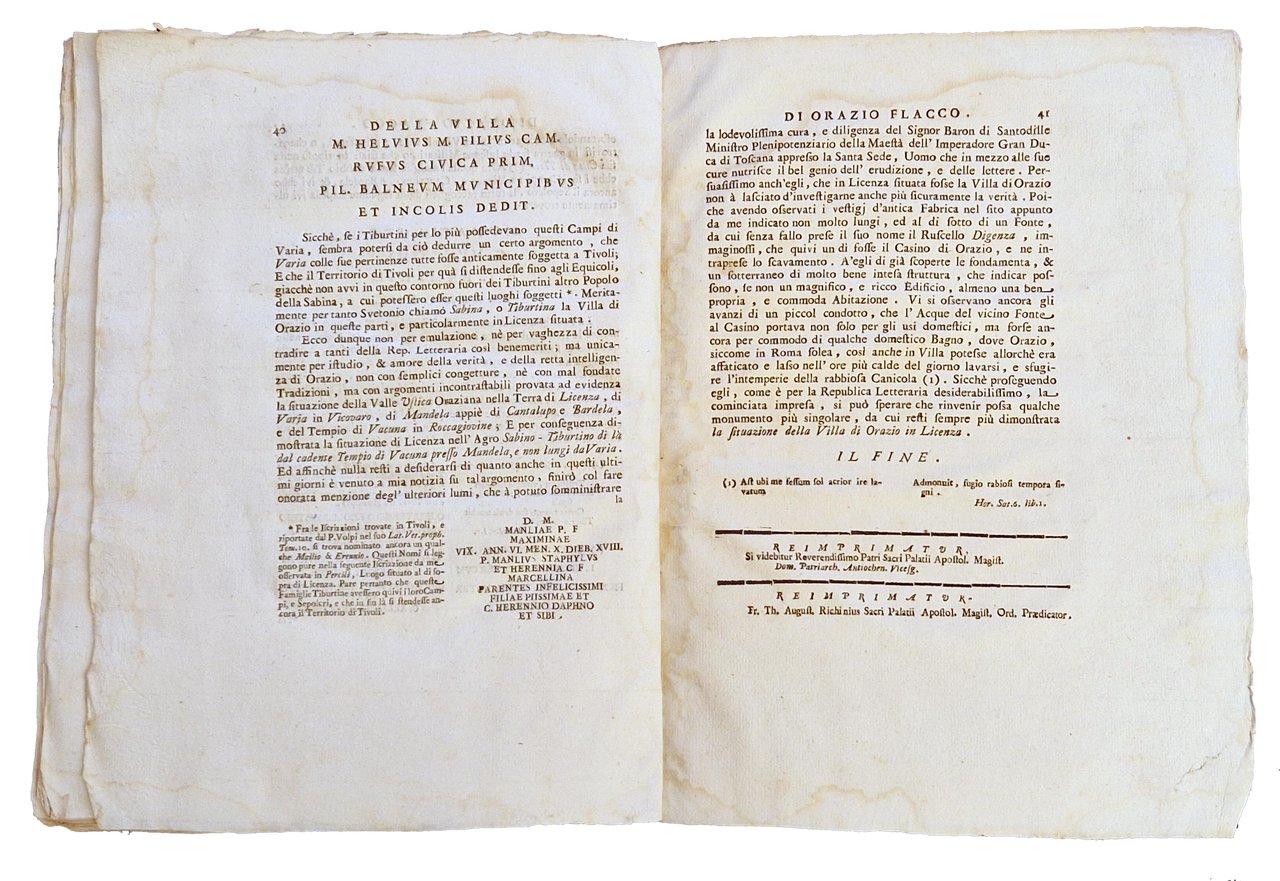 40
DELLA VILLA
M. HELVIVS M. FILIVS CAM.
RVFVS CIVICA PRIM,
PIL. BALNEVM MVNICIPIBVS
ET INCOLIS DEDIT.
Sicchè, se i Tiburtini per lo più possedevano questi Campi di
Varia, sembra potersi da ciò dedurre un certo argomento, che
Varia colle sue pertinenze tutte fosse anticamente soggetta a Tivoli;
E che il Territorio di Tivoli per quà si distendesse fino agli Equicoli,
giacchè non avvi in questo contorno fuori dei Tiburtini altro Popolo
della Sabina, a cui potessero esser questi luoghi soggetti *. Merita-
mente per tanto Svetonio chiamò Sabina, o Tiburtina la Villa di
Orazio in queste parti, e particolarmente in Licenza situata.
Ecco dunque non per emulazione, nè per vaghezza di con-
tradire a tanti della Rep. Letteraria così benemeriti; ma unica-
mente per istudio, & amore della verità, e della retta intelligen-
za di Orazio, non con semplici congetture, nè con mal fondate
Tradizioni, ma con argomenti incontrastabili provata ad evidenza
la situazione della Valle Ustica Oraziana nella Terra di Licenza, di
Varia in Vicovaro, di Mandela appiè di Cantalupo e Bardela,
e del Tempio di Vacuna in Roccagiovine; E per conseguenza di-
mostrata la situazione di Licenza nell' Agro Sabino-Tiburtino di là
dal cadente Tempio di Vacuna presso Mandela, e non lungi da Varia.
Ed affinchè nulla resti a desiderarsi di quanto anche in questi ulti-
mi giorni è venuto a mia notizia su tal argomento, finirò col fare
onorata menzione degl' ulteriori lumi, che à potuto somministrare
la
* Fra le Iscrizioni trovate in Tivoli, e
riportate dal P. Volpi nel suo Lat. Vet. proph.
Tom. 10. si trova nominato ancora un qual-
che Mallio & Erennio. Questi Nomi si leg-
gono pure nella seguente Iscrizione da me
osservata in Percili, Luogo situato al di so-
pra di Licenza. Pare pertanto che queste
Famiglie Tiburtine avessero quivi i loro Cam-
pi, e Sepolcri, e che in fin là si stendesse an-
cora il Territorio di Tivoli.
D. M.
MANLIAE P. F
MAXIMINAE
VIX. ANN. VI. MEN. X. DIEB. XVIII.
P. MANLIVS STAPHYLVS
ET HERENNIA C. F
MARCELLINA
PARENTES INFELICISSIMI
FILIAE PIISSIMAE ET
C. HERENNIO DAPHNO
ET SIBI.
DI ORAZIO FLACCO.
41
la lodevolissima cura, e diligenza del Signor Baron di Santodille
Ministro Plenipotenziario della Maestà dell' Imperadore Gran Du-
ca di Toscana appresso la Santa Sede, Uomo che in mezzo alle sue
cure nutrisce il bel genio dell' erudizione, e delle lettere. Per-
suasissimo anch'egli, che in Licenza situata fosse la Villa di Orazio
non à lasciato d'investigarne anche più sicuramente la verità. Poi-
che avendo osservati i vestigj d'antica Fabrica nel sito appunto
da me indicato non molto lungi, ed al di sotto di un Fonte,
da cui senza fallo prese il suo nome il Ruscello Digenza, im-
maginossi, che quivi un dì fosse il Casino di Orazio, e ne in-
traprese lo scavamento. A'egli di già scoperte le fondamenta, &
un sotterraneo di molto bene intesa struttura, che indicar pos-
sono, se non un magnifico, e ricco Edificio, almeno una ben
propria, e commoda Abitazione. Vi si osservano ancora gli
avanzi di un piccol condotto, che l'Acque del vicino Fonte
al Casino portava non solo per gli usi domestici, ma forse an-
cora per commodo di qualche domestico Bagno, dove Orazio,
siccome in Roma solea, così anche in Villa potesse allorchè era
affaticato e lasso nell' ore più calde del giorno lavarsi, e sfugi-
re l'intemperie della rabbiosa Canicola (1). Sicchè proseguendo
egli, come è per la Republica Letteraria desiderabilissimo, la
cominciata impresa, si può sperare che rinvenir possa qualche
monumento più singolare, da cui resti sempre più dimostrata
la situazione della Villa di Orazio in Licenza.
IL FINE.
(1) Ast ubi me fessum sol acrior ire la-
vatum
Admonuit, fugio rabiosi tempora si-
gni.
Hor. Sat. 6. lib. 1.
REIMPRIMATUR,
Si videbitur Reverendissimo Patri Sacri Palatii Apostol. Magist.
Dom. Patriarch. Antiochen. Vicesg.
REIMPRIMATUR.
Fr. Th. August. Richinius Sacri Palatii Apostol. Magist. Ord. Prædicator.